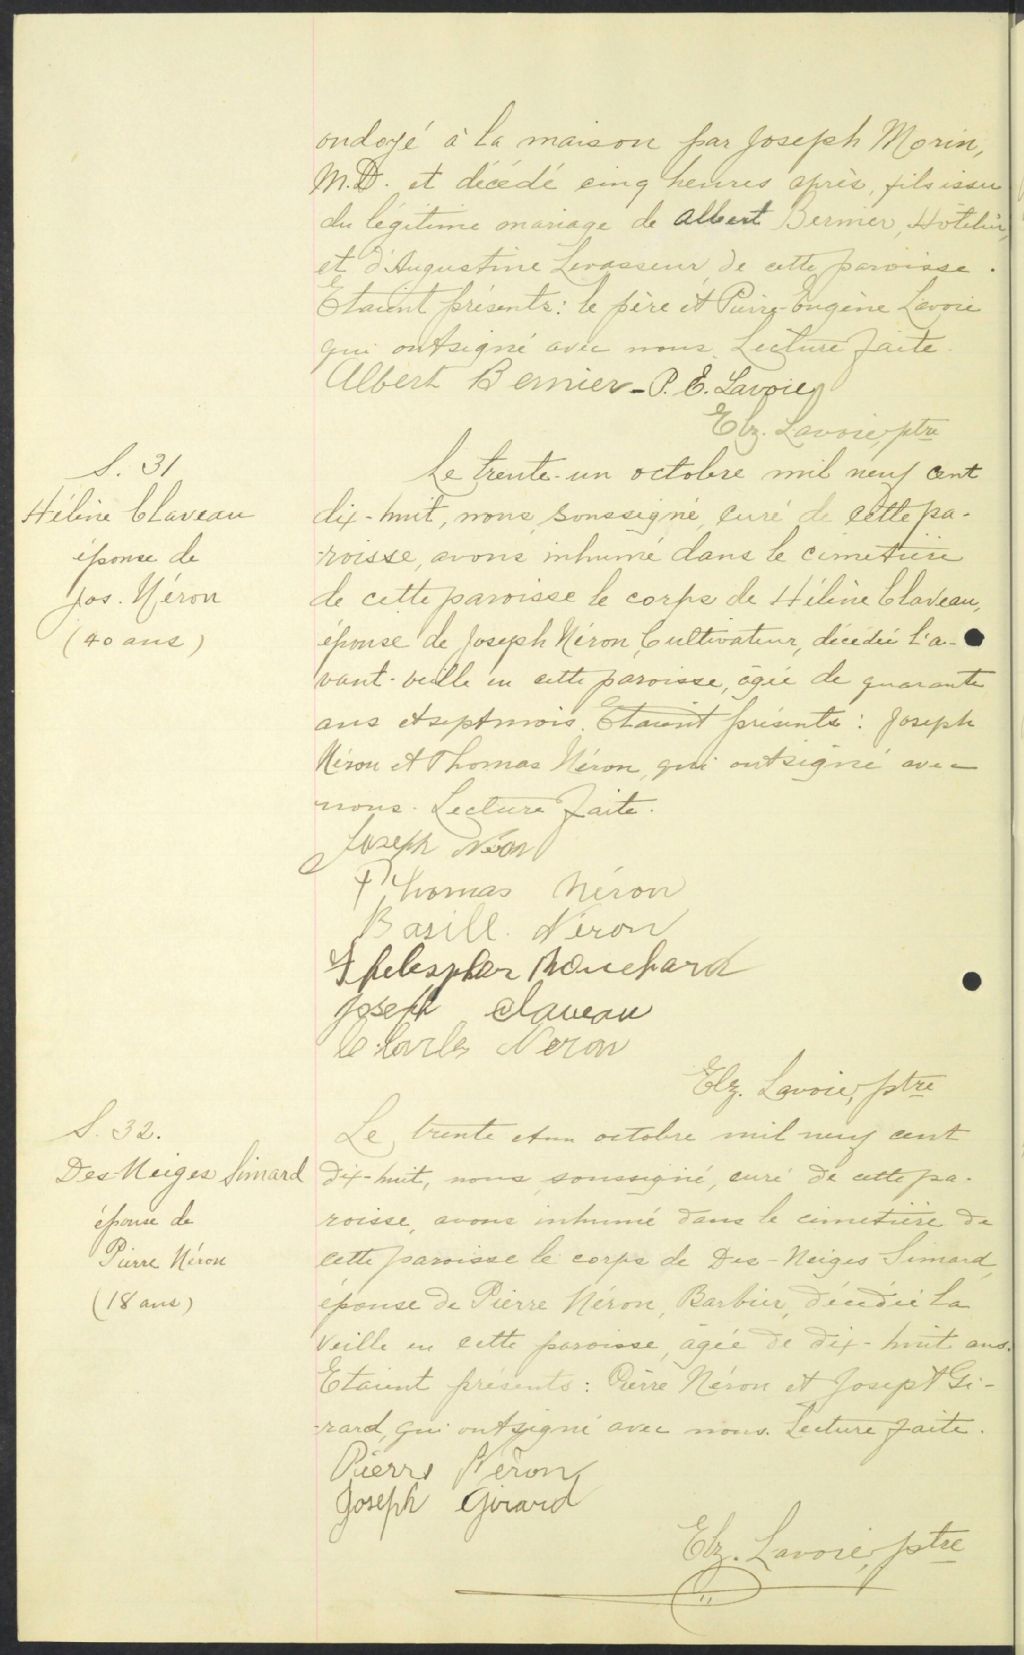 ondoyé à la maison par Joseph Morin,
M.D. et décédé cinq heures après, fils issu
du légitime mariage de Albert Bernier, Hôtelier,
et d'Augustine Levasseur, de cette paroisse.
Etaient présents: le père et Pierre-Eugène Lavoie
qui ont signé avec nous. Lecture faite.
Albert Bernier - P. E. Lavoie
Elz. Lavoie, ptre
S. 31
Hélène Claveau
épouse de
Jos. Néron
(40 ans)
Le trente-un octobre mil neuf cent
dix-huit, nous, soussigné, curé de cette pa-
-roisse, avons inhumé dans le cimetière
de cette paroisse le corps de Hélène Claveau,
épouse de Joseph Néron, Cultivateur, décédée l'a-
vant-veille en cette paroisse, âgée de quarante
ans et sept mois. Etaient présents: Joseph
Néron et Thomas Néron, qui ont signé avec
nous. Lecture faite.
Joseph Néron
Thomas Néron
Basile Néron
Thelesphor Bouchard
Joseph Claveau
Charles Neron
Elz. Lavoie, ptre
S. 32.
Des-Neiges Simard
épouse de
Pierre Néron
(18 ans)
Le trente et un octobre mil neuf cent
dix-huit, nous, soussigné, curé de cette pa-
roisse, avons inhumé dans le cimetière de
cette paroisse le corps de Des-Neiges Simard,
épouse de Pierre Néron, Barbier, décédée la
veille en cette paroisse, âgée de dix-huit ans.
Etaient présents: Pierre Néron et Joseph Gi-
-rard, qui ont signé avec nous. Lecture faite.
Pierre Néron
Joseph Girard
Elz. Lavoie, ptre